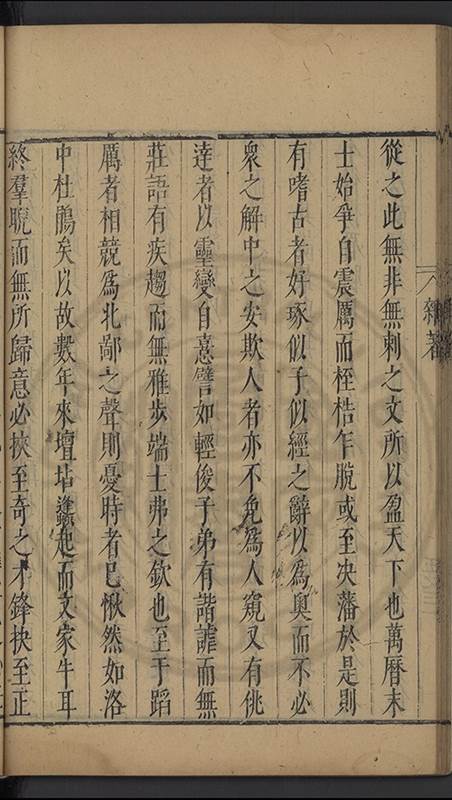 從之此無非無刺之文所以盈天下也萬曆末
士始爭自震厲而桎梏乍脫或至决藩於是則
有嗜古者好琢似子似經之辭以為奧而不必
衆之解中之安欺人者亦不免為人窺又有佻
達者以靈變自憙譬如輕俊子弟有諧謔而無
莊語有疾趨而無雅步端士弗之欽也至于蹈
厲者相競為北鄙之聲則憂時者已愀然如洛
中杜鵑矣以故數年來壇坫蠭起而文家牛耳
終羣睨而無所歸意必挾至奇之才鋒抉至正
雜著